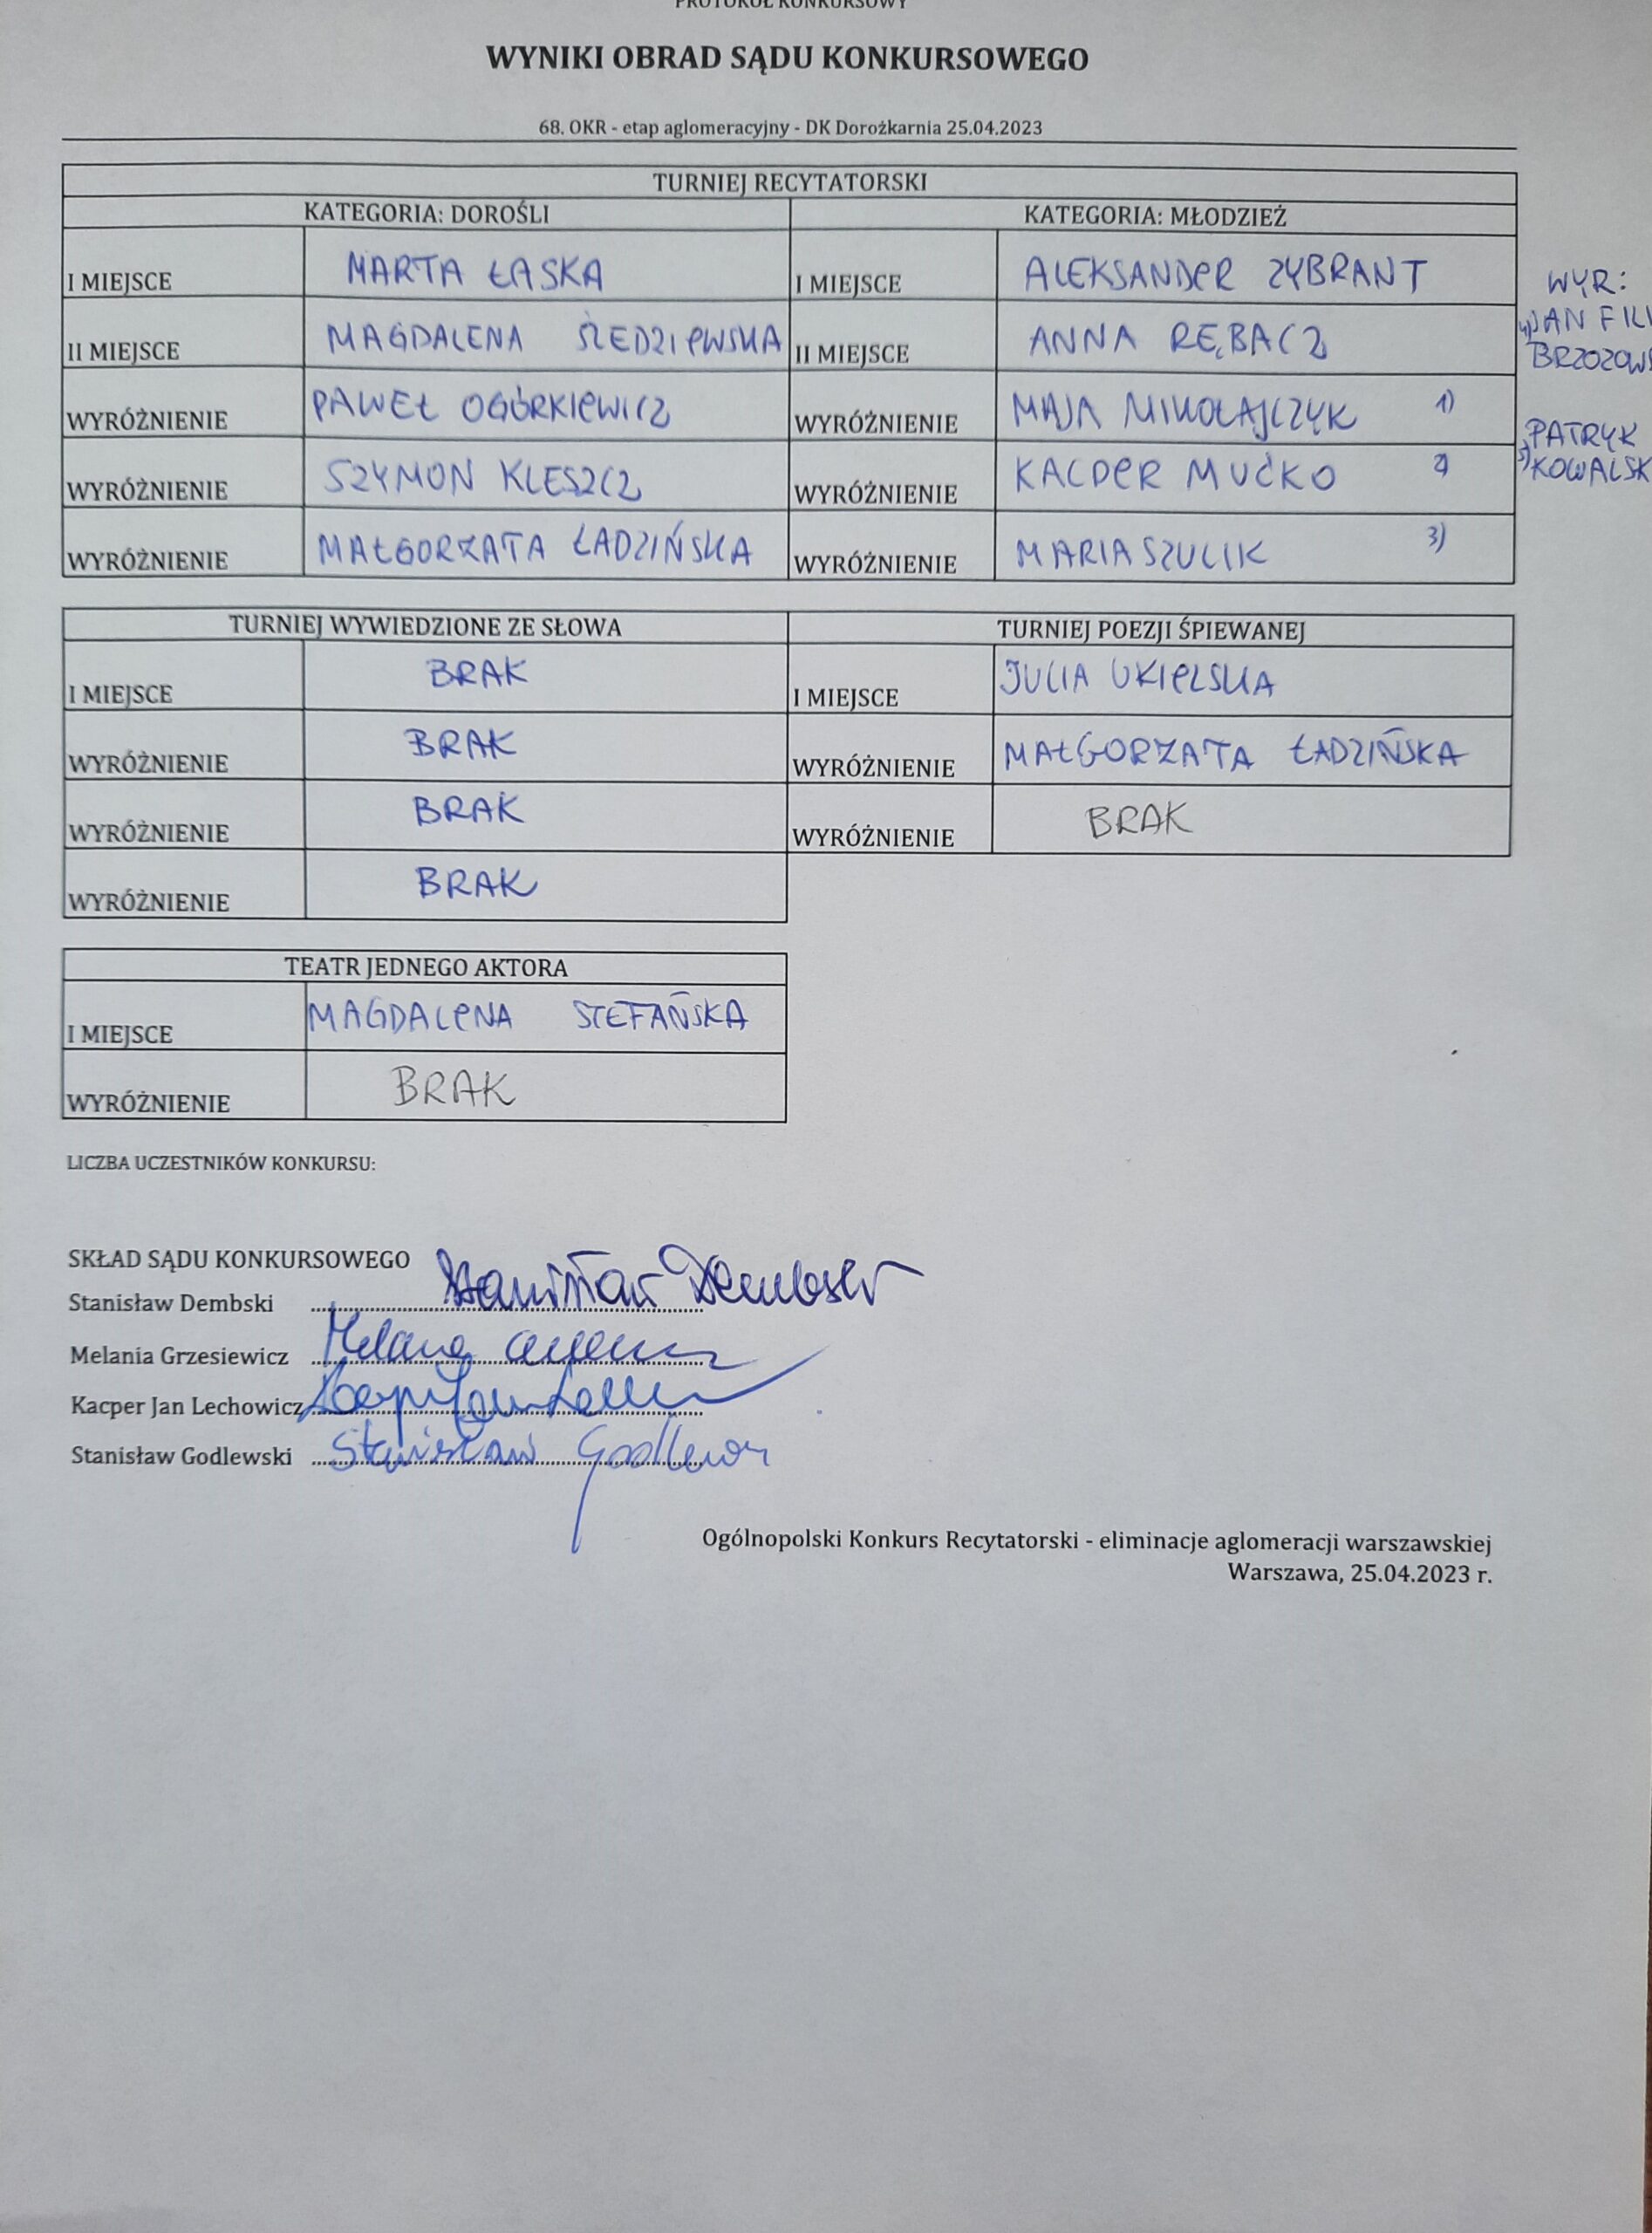 PROTOKÓŁ KONKURSOWY
WYNIKI OBRAD SĄDU KONKURSOWEGO
68. OKR - etap aglomeracyjny - DK Dorożkarnia 25.04.2023
TURNIEJ RECYTATORSKI
KATEGORIA: DOROŚLI
I MIEJSCE MARTA ŁASKA
II MIEJSCE MAGDALENA ŚLEDZIEWSKA
WYRÓŻNIENIE PAWEŁ OGÓRKIEWICZ
WYRÓŻNIENIE SZYMON KLESZCZ
WYRÓŻNIENIE MAŁGORZATA ŁADZIŃSKA
KATEGORIA: MŁODZIEŻ
I MIEJSCE ALEKSANDER ZYBRANT
II MIEJSCE ANNA RĘBACZ
WYRÓŻNIENIE MAJA MIKOŁAJCZYK 1)
WYRÓŻNIENIE KACPER MUĆKO 2)
WYRÓŻNIENIE MARIA SZULIK 3)
WYR:
4) JAN FILI
BRZOZOWS
PATRYK
5) KOWALSK
TURNIEJ WYWIEDZIONE ZE SŁOWA
I MIEJSCE BRAK
WYRÓŻNIENIE BRAK
WYRÓŻNIENIE BRAK
WYRÓŻNIENIE BRAK
TURNIEJ POEZJI ŚPIEWANEJ
I MIEJSCE JULIA UKIELSKA
WYRÓŻNIENIE MAŁGORZATA ŁADZIŃSKA
WYRÓŻNIENIE BRAK
TEATR JEDNEGO AKTORA
I MIEJSCE MAGDALENA STEFAŃSKA
WYRÓŻNIENIE BRAK
LICZBA UCZESTNIKÓW KONKURSU:
SKŁAD SĄDU KONKURSOWEGO
Stanisław Dembski Stanisław Dembski
Melania Grzesiewicz Melania
Kacper Jan Lechowicz
Stanisław Godlewski Stanisław Godlewski
Ogólnopolski Konkurs Recytatorski - eliminacje aglomeracji warszawskiej
Warszawa, 25.04.2023 r.